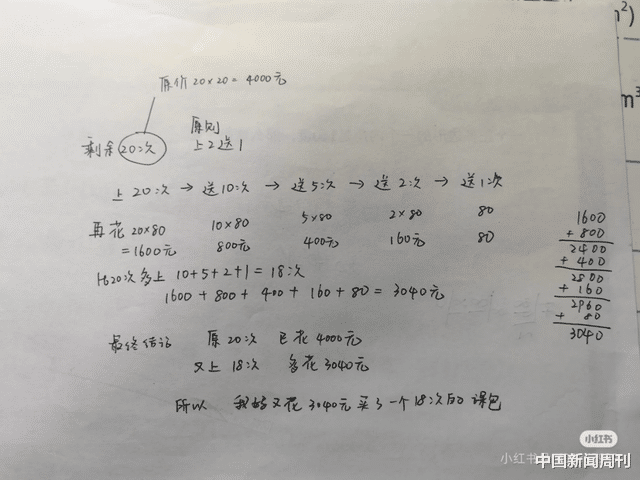 原价 20×20 = 4000元
剩余 20次
原则
上2送1
上20次 → 送10次 → 送5次 → 送2次 → 送1次
再花 20×80 10×80 5×80 2×80 80
=1600元 800元 400元 160元 80
比20次多上 10+5+2+1 = 18次
1600 + 800 + 400 + 160 + 80 = 3040元
1600
+ 800
2400
+ 400
2800
+ 160
2960
+ 80
3040
最终结论 原20次 已花4000元
又上18次 多花3040元
所以 我 又花3040元买了一个18次的课包
m²)
m³
小红书
小红书
中国新闻周刊